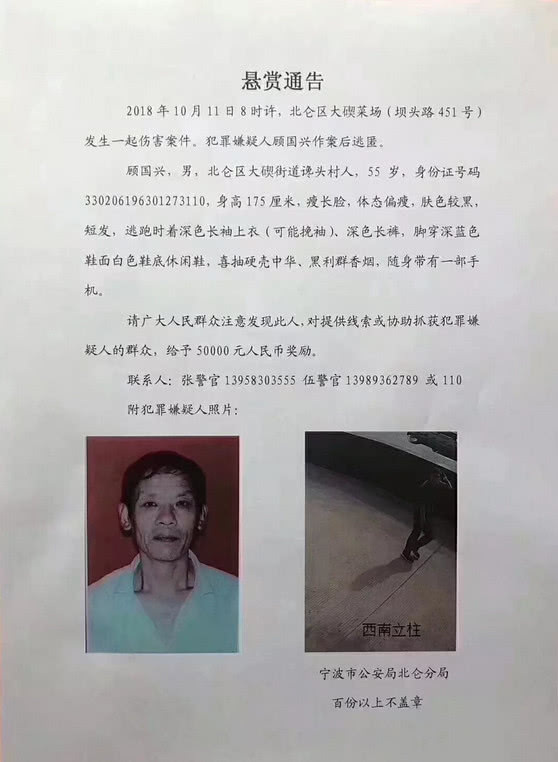 悬赏通告
2018 年 10 月 11 日 8 时许，北仑区大碶菜场（坝头路 451 号）
发生一起伤害案件。犯罪嫌疑人顾国兴作案后逃匿。
顾国兴，男，北仑区大碶街道谗头村人，55 岁，身份证号码
330206196301273110，身高 175 厘米，瘦长脸，体态偏瘦，肤色较黑，
短发，逃跑时着深色长袖上衣（可能挽袖）、深色长裤，脚穿深蓝色
鞋面白色鞋底休闲鞋，喜抽硬壳中华、黑利群香烟，随身带有一部手
机。
请广大人民群众注意发现此人，对提供线索或协助抓获犯罪嫌
疑人的群众，给予 50000 元人民币奖励。
联系人：张警官 13958303555 伍警官 13989362789 或 110
附犯罪嫌疑人照片：
西南立柱
宁波市公安局北仑分局
百份以上不盖章